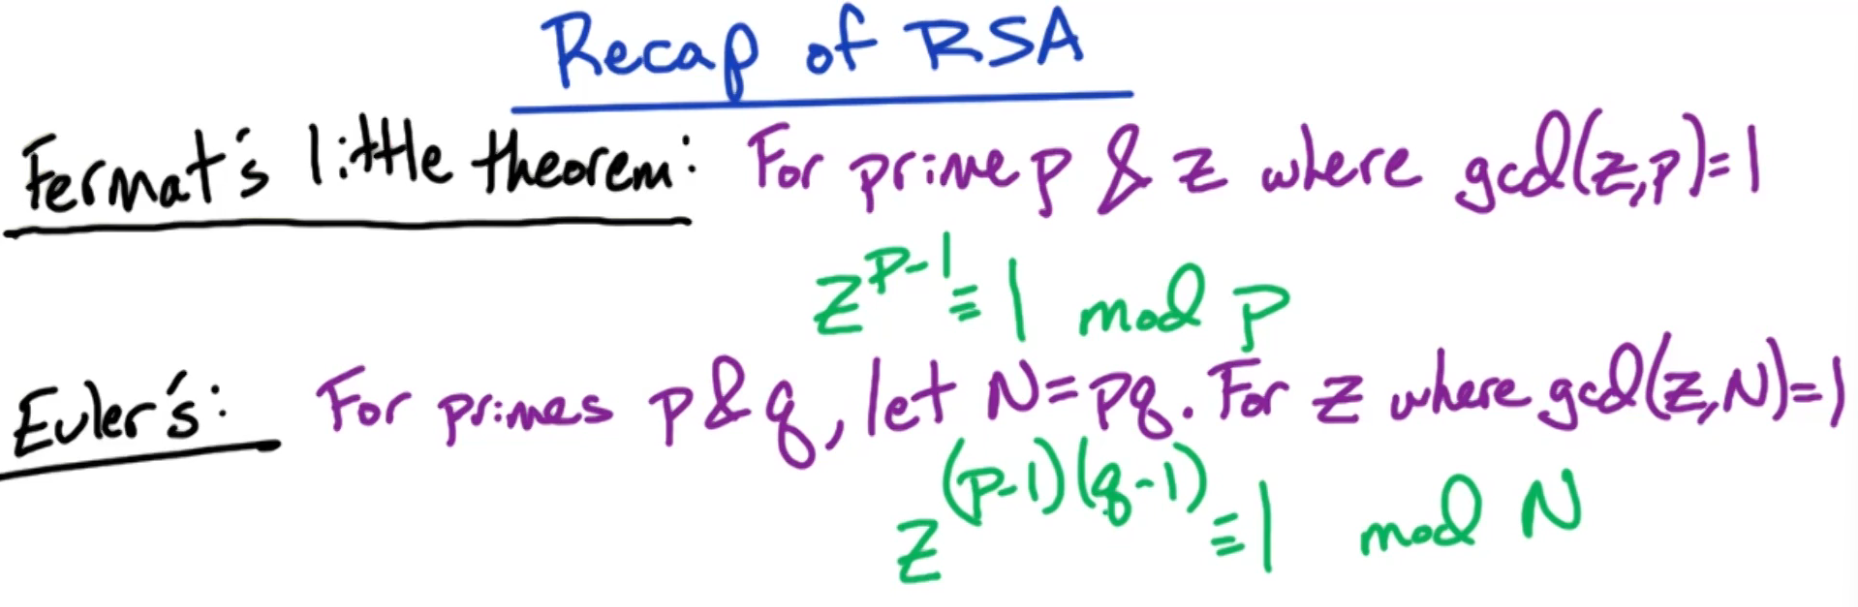 Recap of RSA
Fermat's little theorem: For prime p & z where gcd(z,p)=1
z^{p-1} ≡ 1 mod p
Euler's: For primes p & q, let N=pq. For z where gcd(z,N)=1
z^{(p-1)(q-1)} ≡ 1 mod N